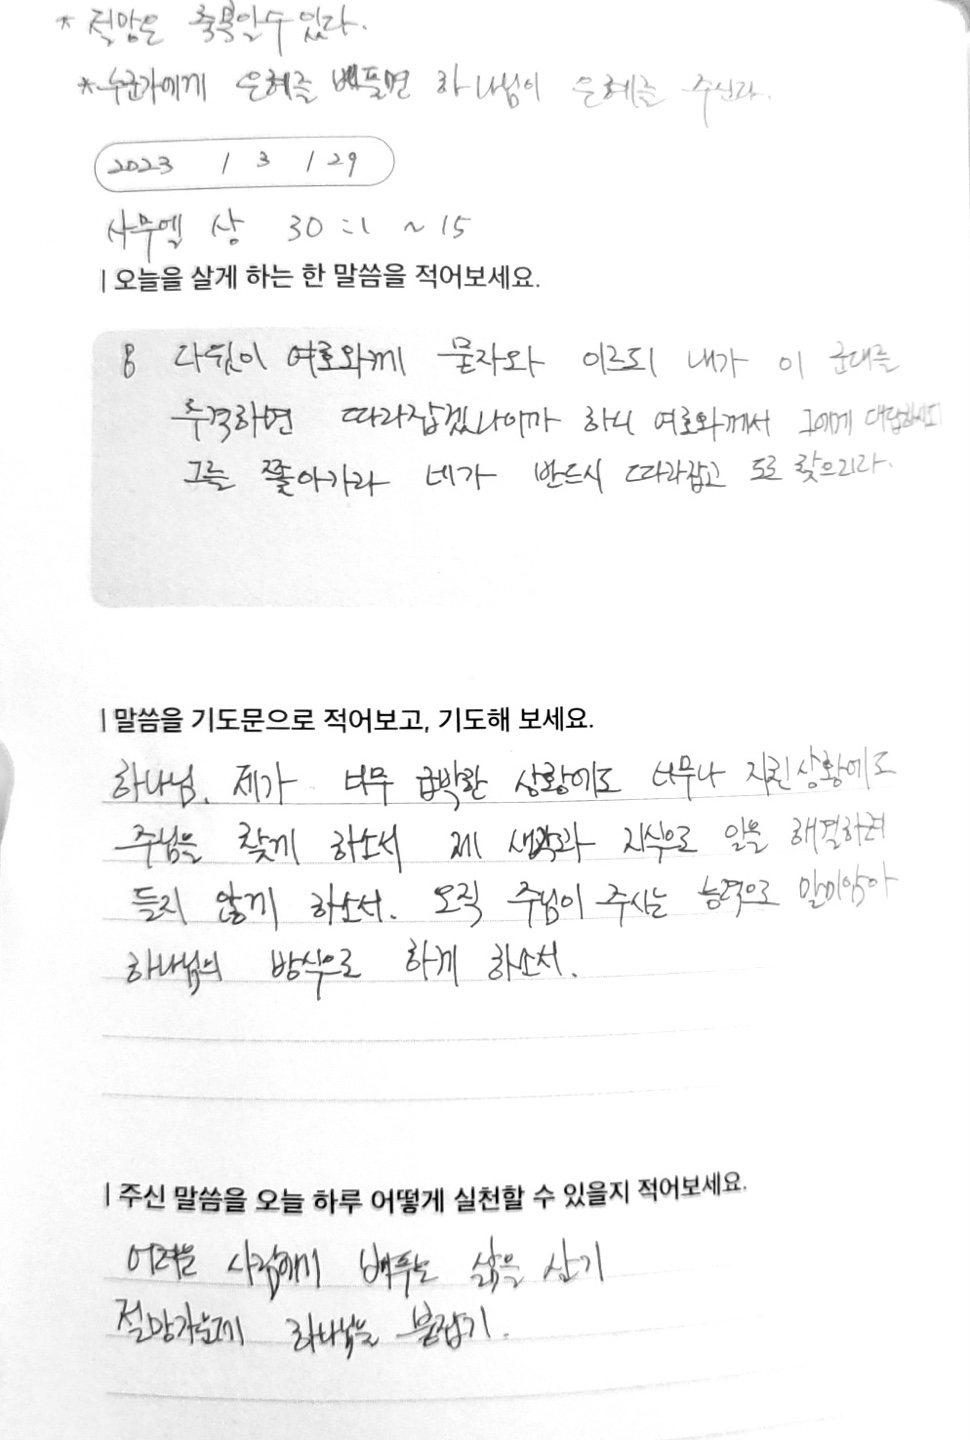 * 절망은 축복일수 있다.
* 누군가에게 은혜를 베풀면 하나님이 은혜를 주신다.
2023 / 3 / 29
사무엘 상 30:1 ~ 15
| 오늘을 살게 하는 한 말씀을 적어보세요.
8 다윗이 여호와께 묻자와 이르되 내가 이 군대를
추격하면 따라잡겠나이까 하니 여호와께서 그에게 대답하시되
그를 쫓아가라 네가 반드시 따라잡고 도로 찾으리라.
| 말씀을 기도문으로 적어보고, 기도해 보세요.
하나님. 제가 너무 급박한 상황에도 너무나 지친상황에도
주님을 찾게 하소서 제 생각과 지식으로 일을 해결하려
들지 않게 하소서. 오직 주님이 주시는 능력으로 말미암아
하나님의 방식으로 하게 하소서.
| 주신 말씀을 오늘 하루 어떻게 실천할 수 있을지 적어보세요.
어려운 사람에게 베푸는 삶을 살기
절망가운데 하나님을 붙잡기.